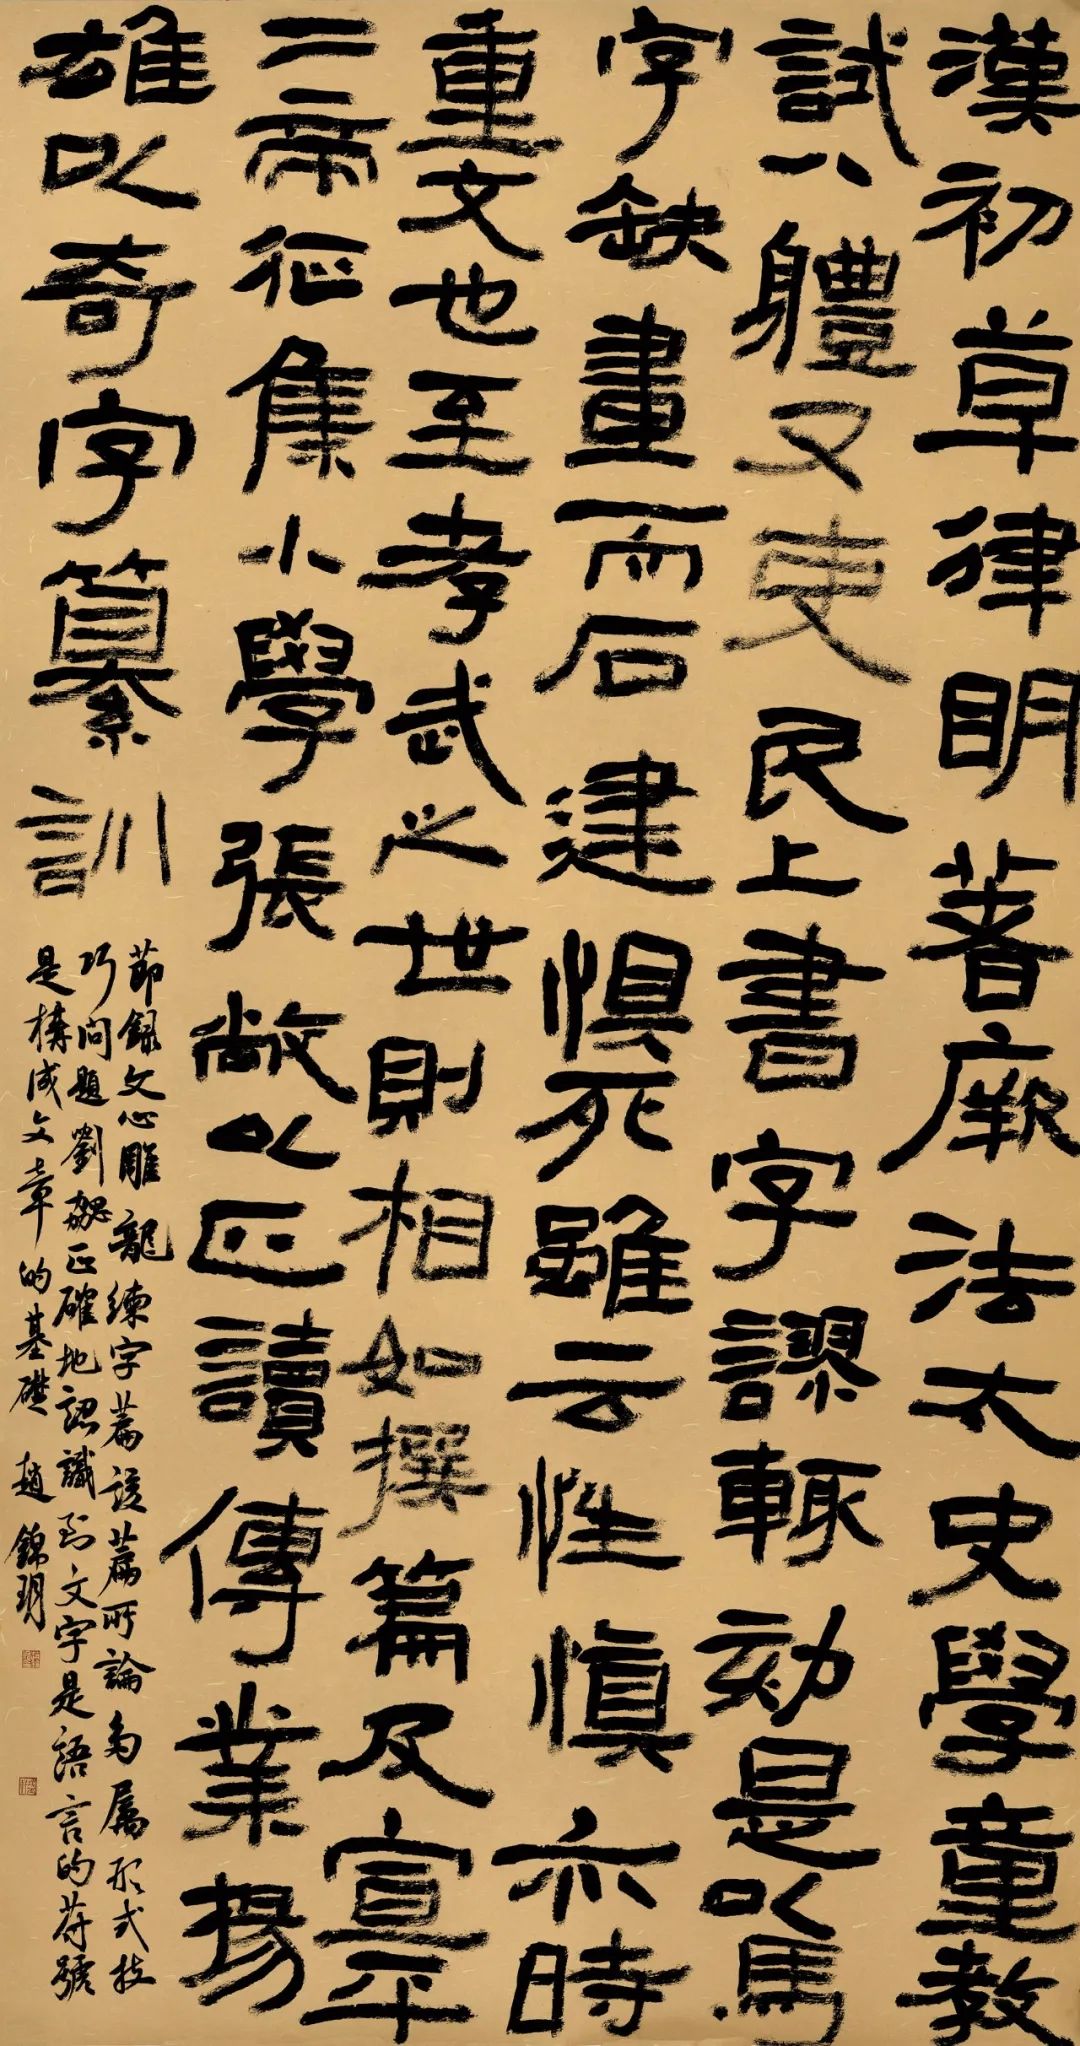 漢初草律明著厥法太史學童教
試八體又吏民上書字謬輒劾是以馬
字缺畫而石建懼死雖云性慎亦時
重文也至孝武之世則相如撰篇及宣平
二帝征集小學張敞以正讀傳業揚
雄以奇字纂訓
節録文心雕龍練字篇該篇所論多屬形式技
巧問題劉勰正確地認識到文字是語言的符號
是構成文章的基礎 趙錦玥